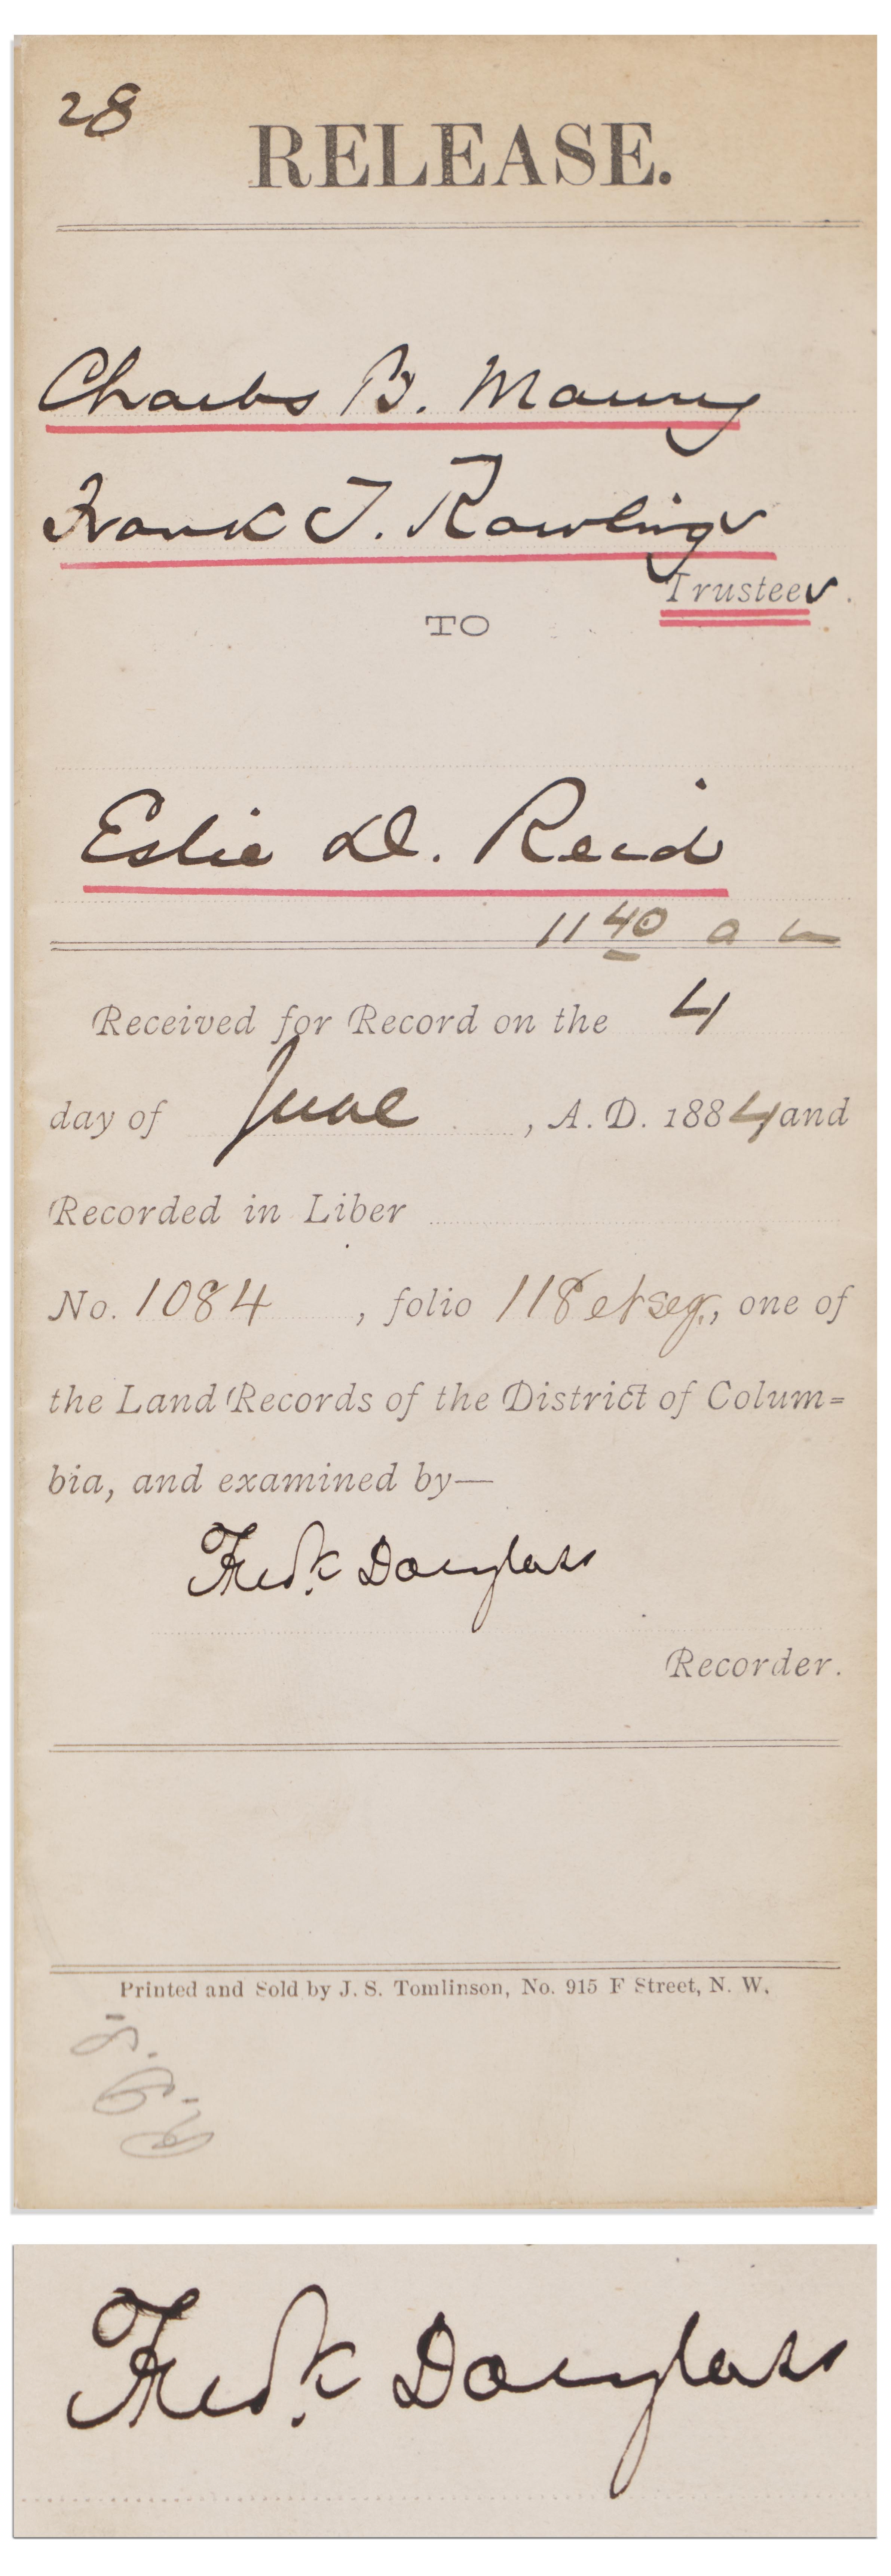 28
RELEASE.
Charles B. Maury
Frank T. Rawlings
Trustees.
TO
Eslie D. Reid
11 40 a m
Received for Record on the 4
day of June, A. D. 1884 and
Recorded in Liber
No. 1084, folio 118 et seq., one of
the Land Records of the District of Colum=
bia, and examined by—
Fredk Douglass
Recorder.
Printed and Sold by J. S. Tomlinson, No. 915 F Street, N. W.
Fredk Douglass